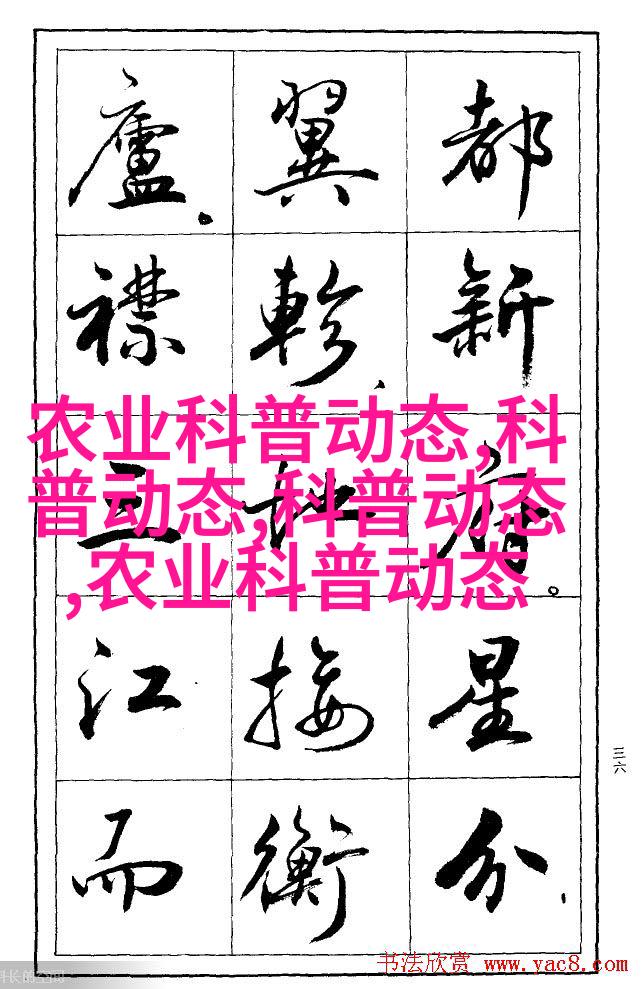 都新府。星分、
翼軫、地接衡
廬。襟三江而
农业科普动态,科
普动态,科普动态
,农业科普动态
三六
书法欣赏 www.yac8.com
长的空间